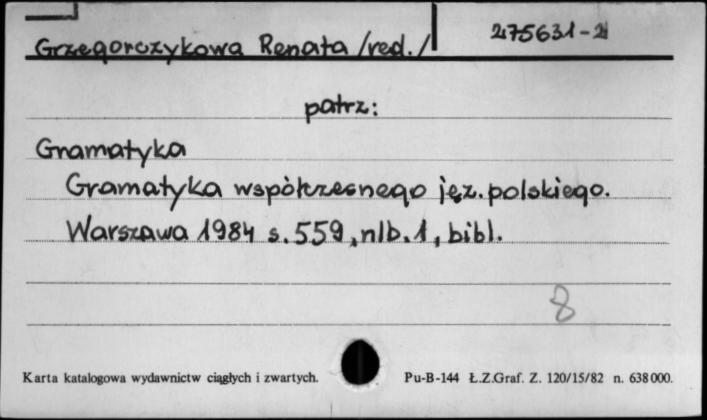 Grzegorczykowa Renata /red./ 275631-2
patrz:
Gramatyka
Gramatyka współczesnego jęz. polskiego.
Warszawa 1984 s. 559, nlb. 1, bibl.
8
Karta katalogowa wydawnictw ciągłych i zwartych. Pu-B-144 Ł.Z.Graf. Z. 120/15/82 n. 638000.